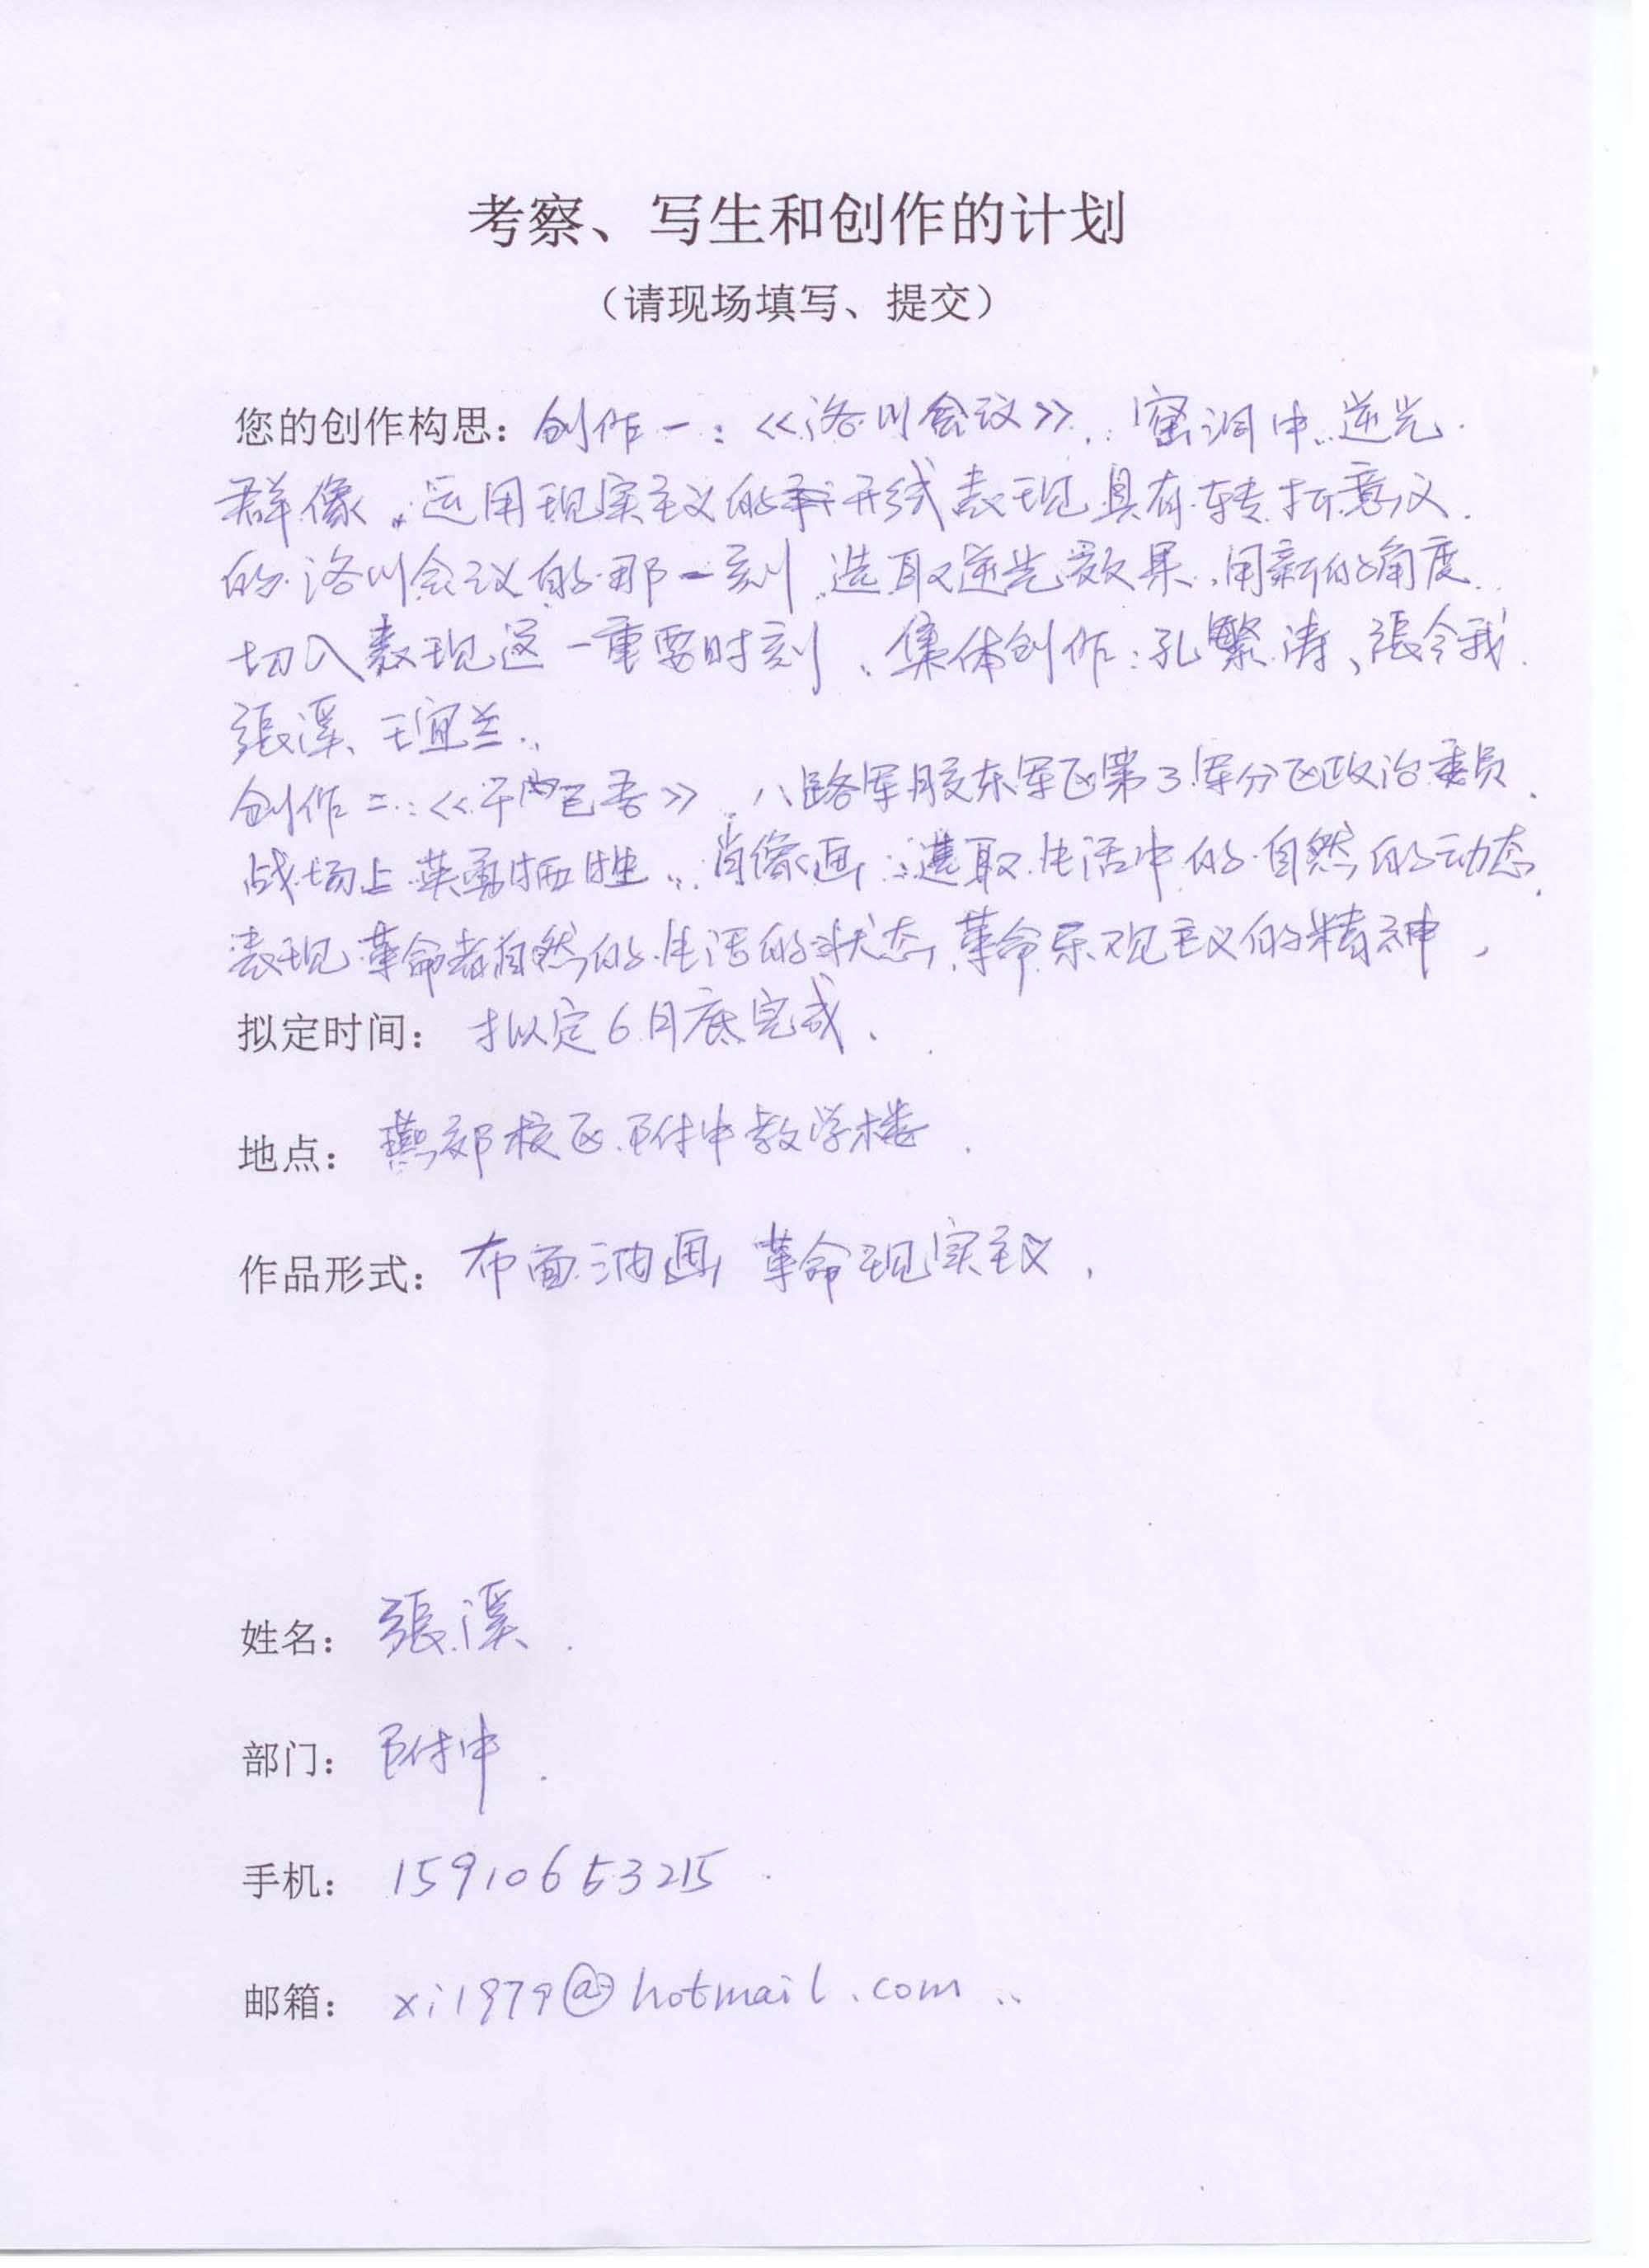 考察、写生和创作的计划
（请现场填写、提交）
您的创作构思：创作一：《洛川会议》，窑洞中逆光
群像，运用现实主义的形式表现具有转折意义
的洛川会议的那一刻，选取逆光效果，用新的角度
切入表现这一重要时刻、集体创作：孔繁涛、張令我
張溪、王宜兰.
创作二：《于己吾》，八路军胶东军区第3军分区政治委员.
战场上英勇牺牲，肖像画：选取生活中的自然的动态
表现革命者自然的生活的状态，革命乐观主义的精神，
拟定时间：拟定6月底完成.
地点：燕郊校区附中教学楼.
作品形式：布面油画 革命现实主义，
姓名：張溪.
部门：附中.
手机：15910653215
邮箱：xi1979@hotmail.com